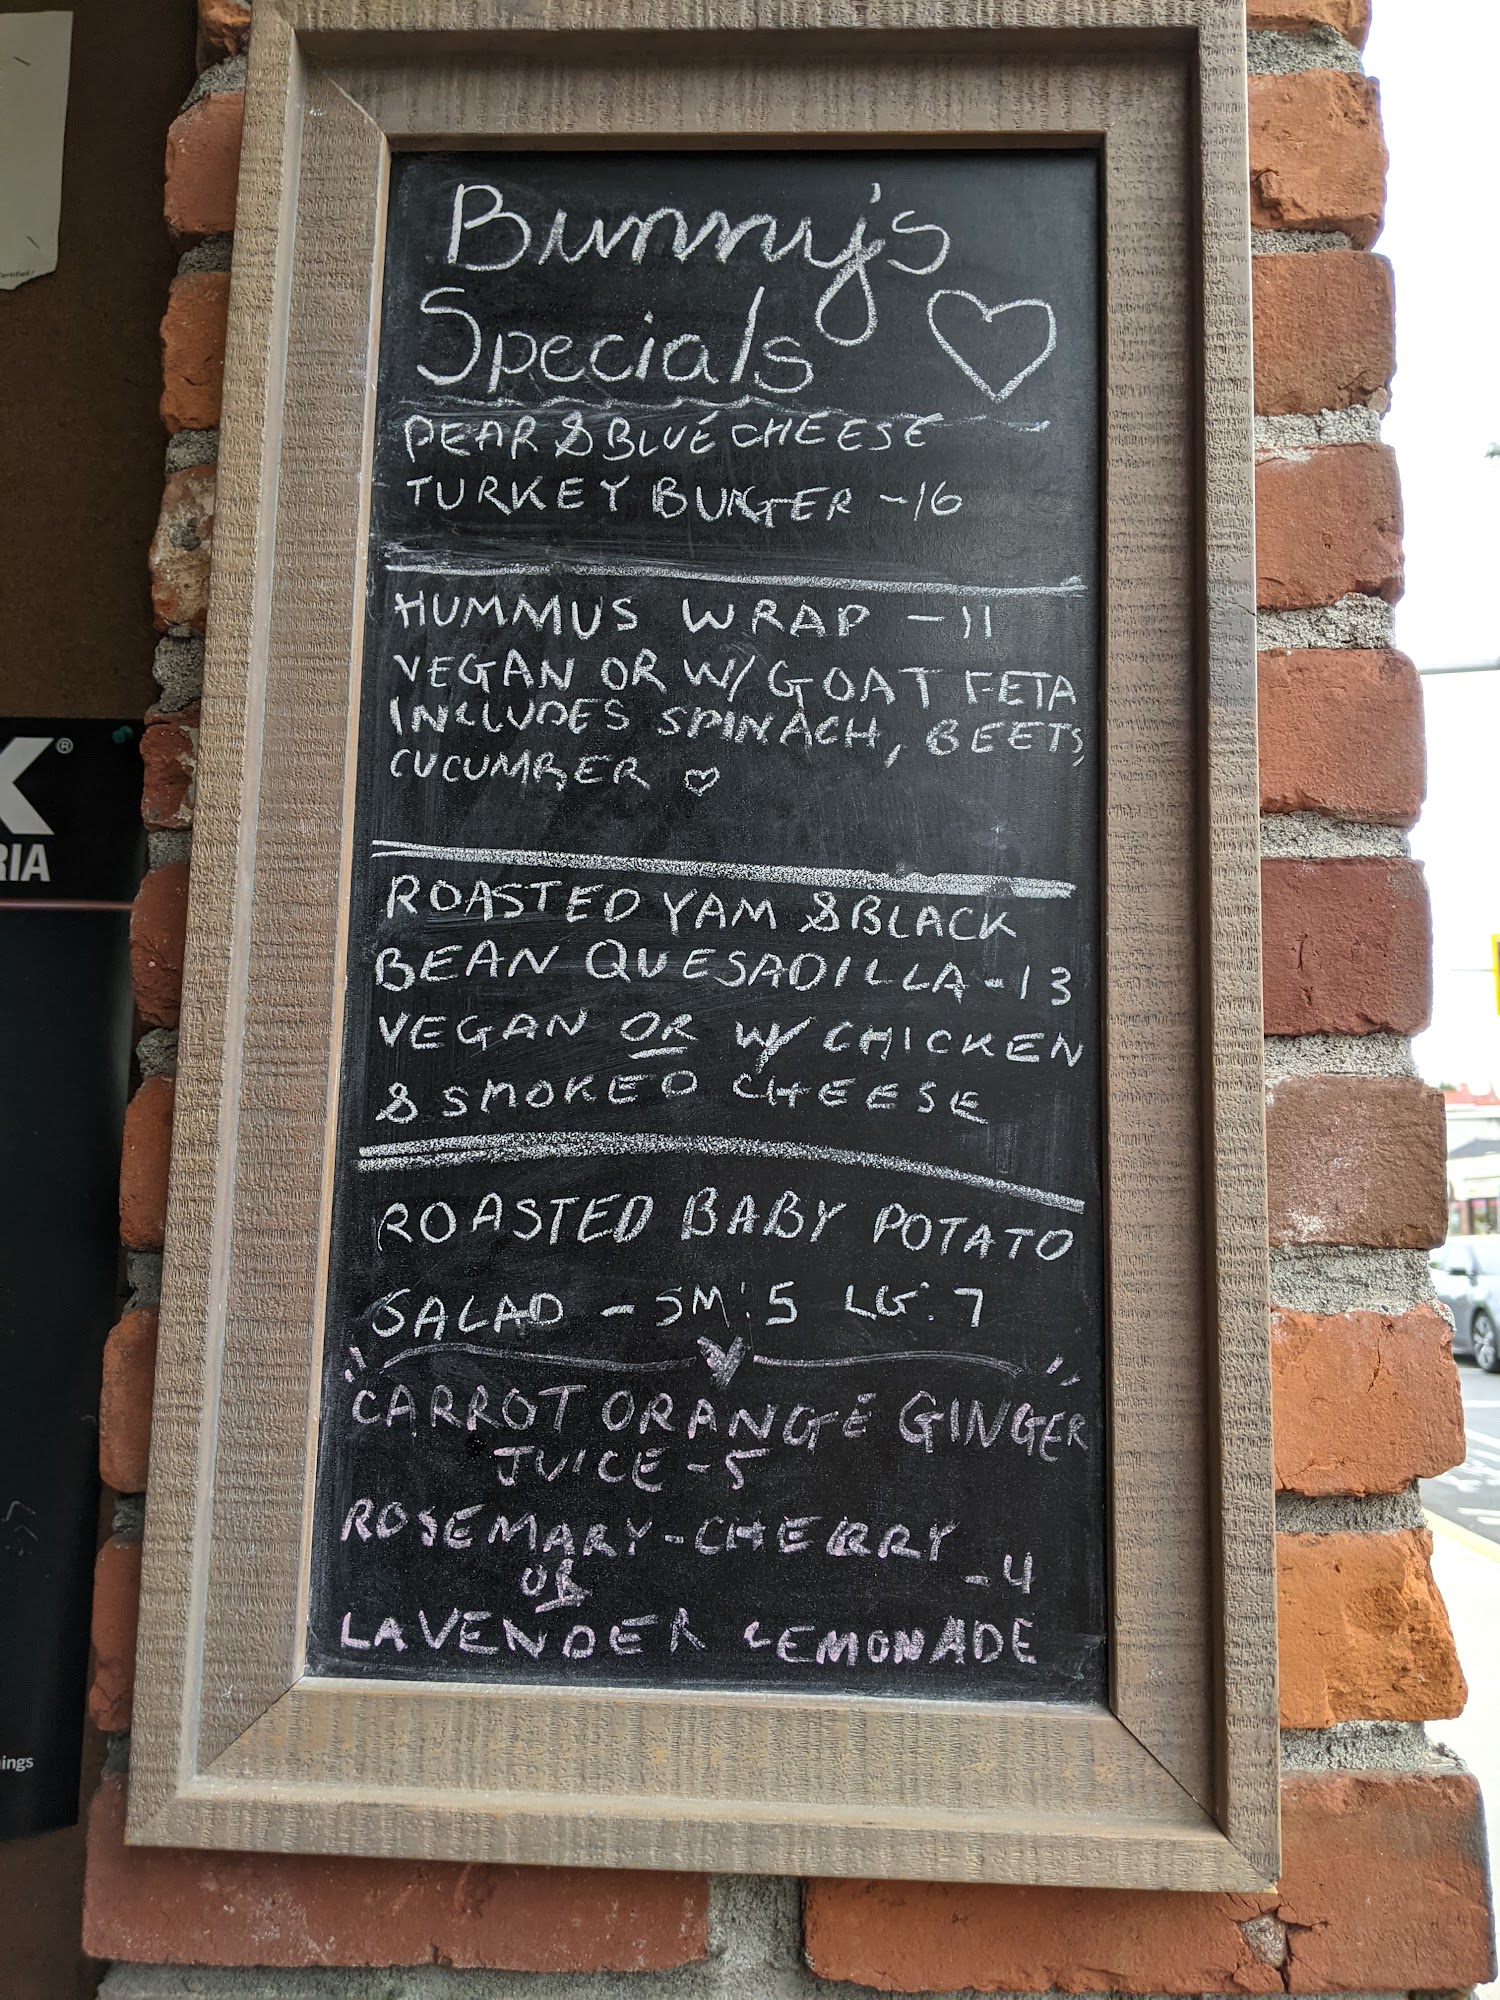 Certified /
K®
RIA
ings
Bunny's
Specials
PEAR & BLUE CHEESE
TURKEY BURGER -16
HUMMUS WRAP - 11
VEGAN OR W/ GOAT FETA
INCLUDES SPINACH, BEETS,
CUCUMBER
ROASTED YAM & BLACK
BEAN QUESADILLA - 13
VEGAN OR W/ CHICKEN
& SMOKED CHEESE
ROASTED BABY POTATO
SALAD - SM: 5 LG: 7
CARROT ORANGE GINGER
JUICE - 5
ROSEMARY-CHERRY
OR - 4
LAVENDER LEMONADE